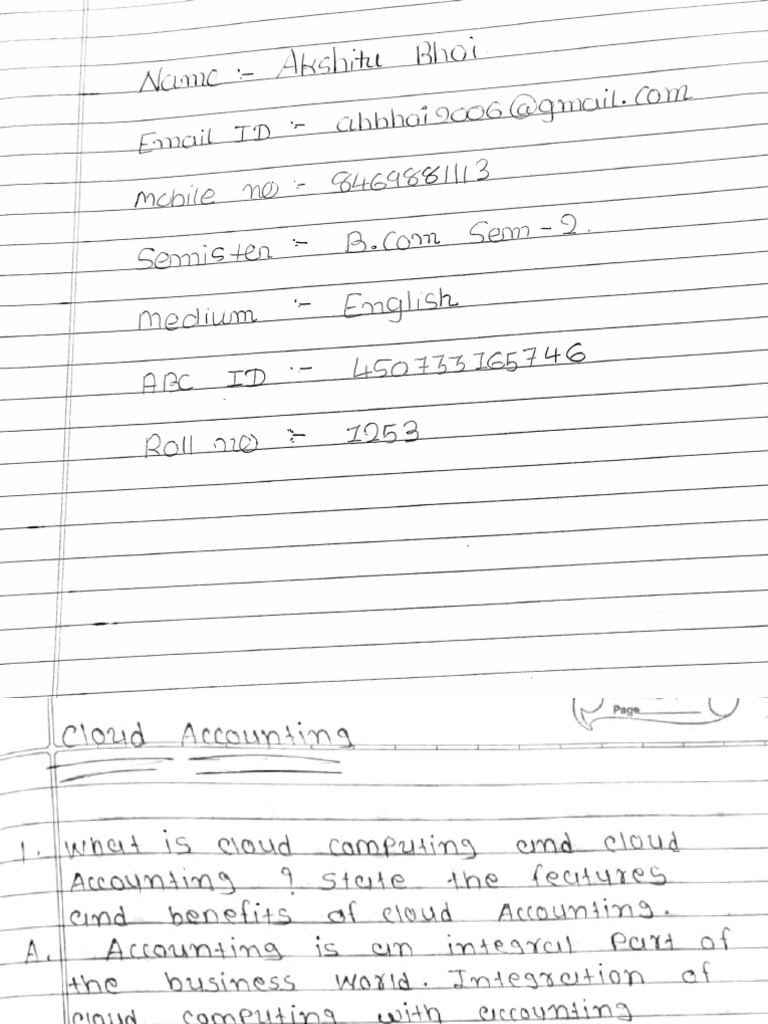 Name :- Akshitu Bhoi
Email ID :- abbhoi2006@gmail.com
Mobile no :- 8469881113
Semister :- B.com Sem - 2.
Medium :- English
ABC ID :- 450733165746
Roll no :- 1253
Page
Cloud Accounting
1. What is cloud computing and cloud
Accounting ? State the features
and benefits of cloud Accounting.
A. Accounting is an integral Part of
the business World. Integration of
cloud computing with accounting